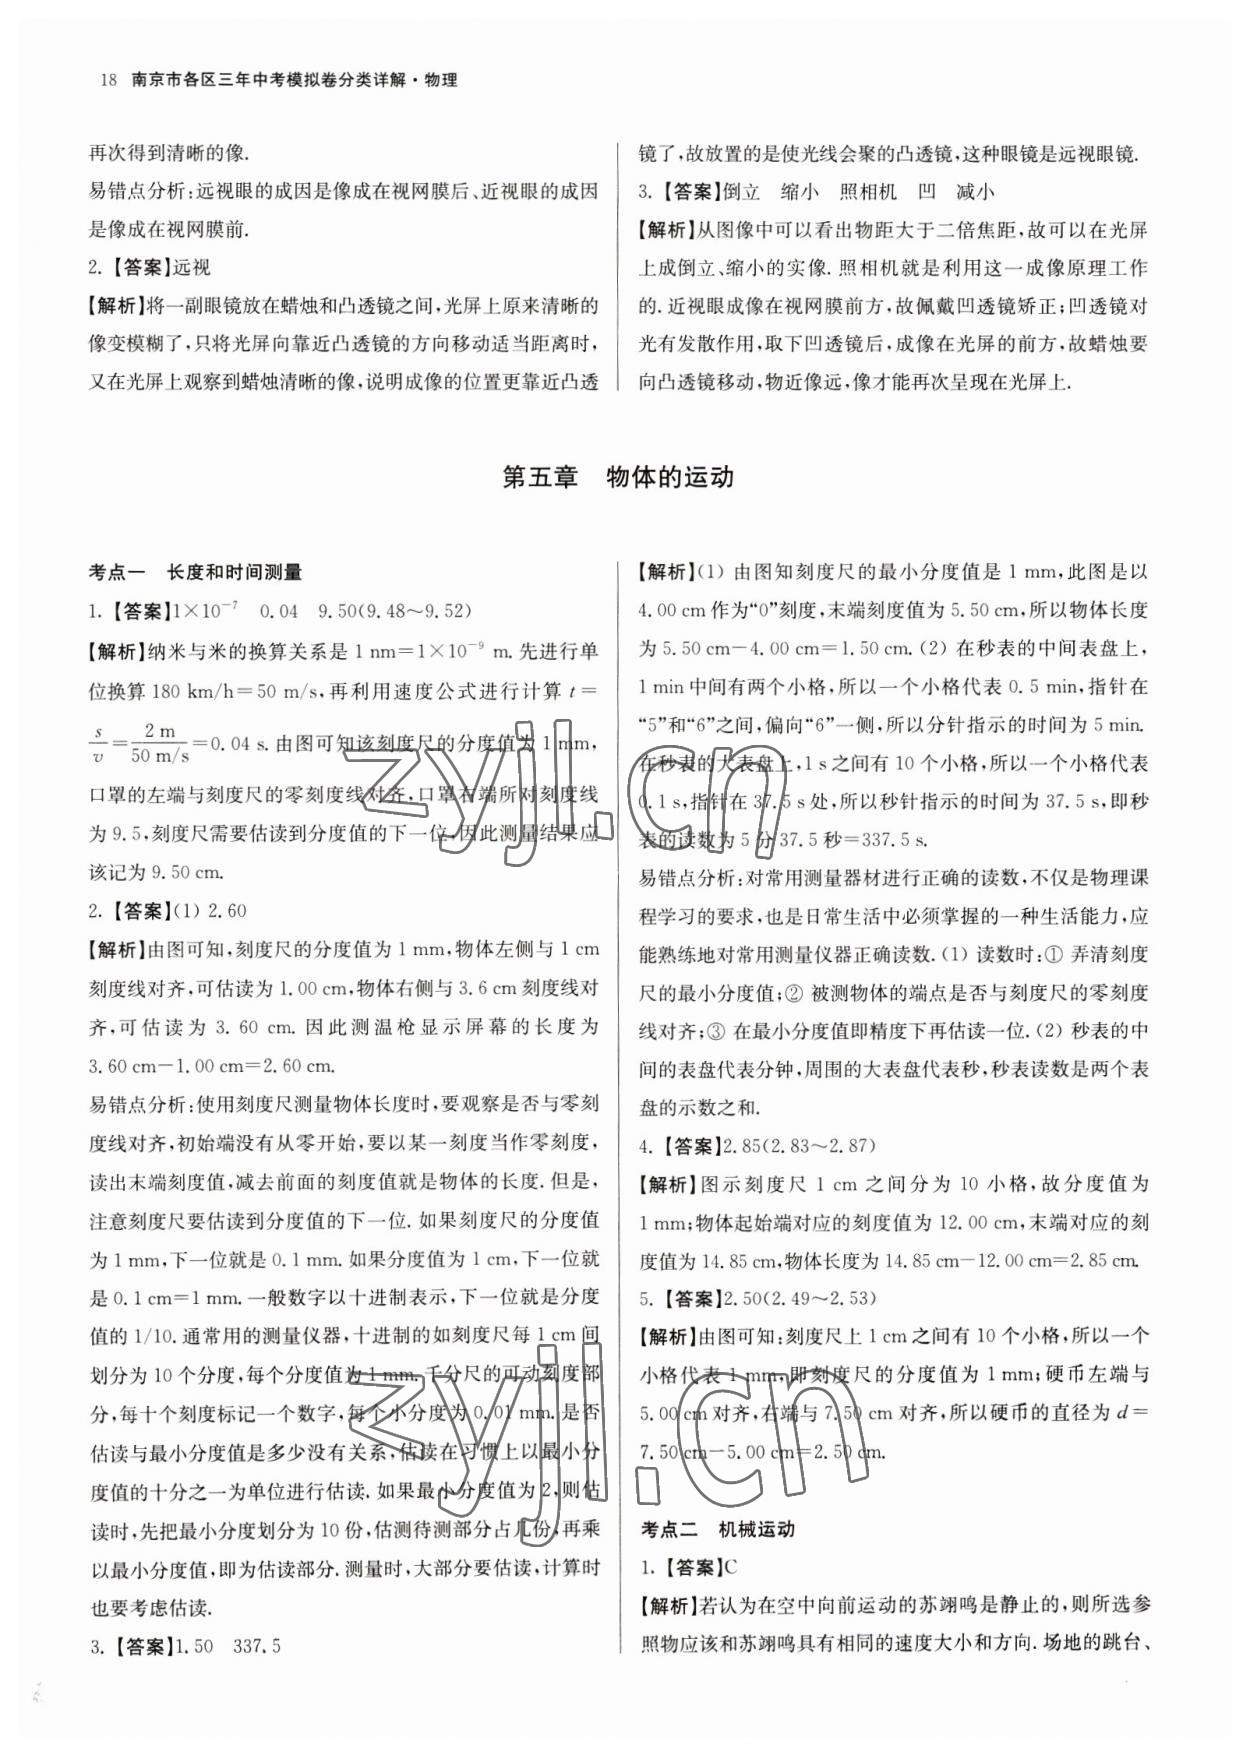 18 南京市各区三年中考模拟卷分类详解·物理
再次得到清晰的像.
易错点分析:远视眼的成因是像成在视网膜后、近视眼的成因
是像成在视网膜前.
2.【答案】远视
【解析】将一副眼镜放在蜡烛和凸透镜之间,光屏上原来清晰的
像变模糊了,只将光屏向靠近凸透镜的方向移动适当距离时,
又在光屏上观察到蜡烛清晰的像,说明成像的位置更靠近凸透
镜了,故放置的是使光线会聚的凸透镜,这种眼镜是远视眼镜.
3.【答案】倒立 缩小 照相机 凹 减小
【解析】从图像中可以看出物距大于二倍焦距,故可以在光屏
上成倒立、缩小的实像. 照相机就是利用这一成像原理工作
的. 近视眼成像在视网膜前方,故佩戴凹透镜矫正;凹透镜对
光有发散作用,取下凹透镜后,成像在光屏的前方,故蜡烛要
向凸透镜移动,物近像远,像才能再次呈现在光屏上.
第五章 物体的运动
考点一 长度和时间测量
1.【答案】1×10⁻⁷ 0.04 9.50(9.48～9.52)
【解析】纳米与米的换算关系是 1 nm=1×10⁻⁹ m. 先进行单
位换算 180 km/h=50 m/s,再利用速度公式进行计算 t=
s/v=2 m/50 m/s=0.04 s. 由图可知该刻度尺的分度值为 1 mm,
口罩的左端与刻度尺的零刻度线对齐,口罩右端所对刻度线
为 9.5,刻度尺需要估读到分度值的下一位,因此测量结果应
该记为 9.50 cm.
2.【答案】(1) 2.60
【解析】由图可知,刻度尺的分度值为 1 mm,物体左侧与 1 cm
刻度线对齐,可估读为 1.00 cm,物体右侧与 3.6 cm 刻度线对
齐,可估读为 3.60 cm. 因此测温枪显示屏幕的长度为
3.60 cm−1.00 cm=2.60 cm.
易错点分析:使用刻度尺测量物体长度时,要观察是否与零刻
度线对齐,初始端没有从零开始,要以某一刻度当作零刻度,
读出末端刻度值,减去前面的刻度值就是物体的长度. 但是,
注意刻度尺要估读到分度值的下一位. 如果刻度尺的分度值
为 1 mm,下一位就是 0.1 mm. 如果分度值为 1 cm,下一位就
是 0.1 cm=1 mm. 一般数字以十进制表示,下一位就是分度
值的 1/10. 通常用的测量仪器,十进制的如刻度尺每 1 cm 间
划分为 10 个分度,每个分度值为 1 mm. 千分尺的可动刻度部
分,每十个刻度标记一个数字,每个小分度为 0.01 mm. 是否
估读与最小分度值是多少没有关系,估读在习惯上以最小分
度值的十分之一为单位进行估读. 如果最小分度值为 2,则估
读时,先把最小分度划分为 10 份,估测待测部分占几份,再乘
以最小分度值,即为估读部分. 测量时,大部分要估读,计算时
也要考虑估读.
3.【答案】1.50 337.5
【解析】(1) 由图知刻度尺的最小分度值是 1 mm,此图是以
4.00 cm 作为“0”刻度,末端刻度值为 5.50 cm,所以物体长度
为 5.50 cm−4.00 cm=1.50 cm. (2) 在秒表的中间表盘上,
1 min 中间有两个小格,所以一个小格代表 0.5 min,指针在
“5”和“6”之间,偏向“6”一侧,所以分针指示的时间为 5 min.
在秒表的大表盘上,1 s 之间有 10 个小格,所以一个小格代表
0.1 s,指针在 37.5 s 处,所以秒针指示的时间为 37.5 s,即秒
表的读数为 5 分 37.5 秒=337.5 s.
易错点分析:对常用测量器材进行正确的读数,不仅是物理课
程学习的要求,也是日常生活中必须掌握的一种生活能力,应
能熟练地对常用测量仪器正确读数. (1) 读数时:① 弄清刻度
尺的最小分度值;② 被测物体的端点是否与刻度尺的零刻度
线对齐;③ 在最小分度值即精度下再估读一位. (2) 秒表的中
间的表盘代表分钟,周围的大表盘代表秒,秒表读数是两个表
盘的示数之和.
4.【答案】2.85(2.83～2.87)
【解析】图示刻度尺 1 cm 之间分为 10 小格,故分度值为
1 mm;物体起始端对应的刻度值为 12.00 cm,末端对应的刻
度值为 14.85 cm,物体长度为 14.85 cm−12.00 cm=2.85 cm.
5.【答案】2.50(2.49～2.53)
【解析】由图可知:刻度尺上 1 cm 之间有 10 个小格,所以一个
小格代表 1 mm,即刻度尺的分度值为 1 mm;硬币左端与
5.00 cm 对齐,右端与 7.50 cm 对齐,所以硬币的直径为 d=
7.50 cm−5.00 cm=2.50 cm.
考点二 机械运动
1.【答案】C
【解析】若认为在空中向前运动的苏翊鸣是静止的,则所选参
照物应该和苏翊鸣具有相同的速度大小和方向. 场地的跳台、
zyjl.cn
zyjl.cn